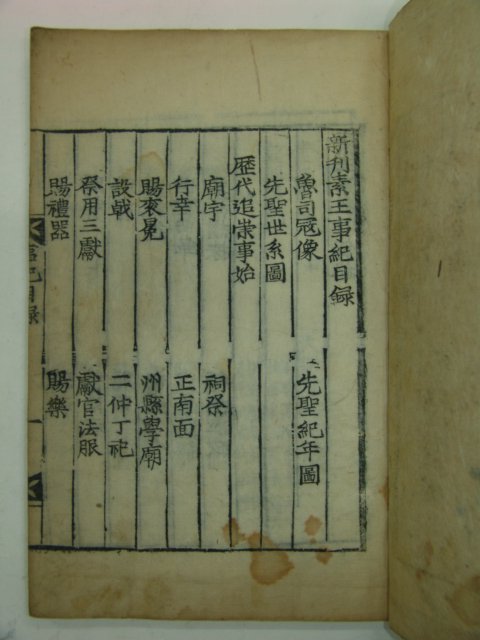 新刊素王事紀目録
魯司冦像 先聖紀年圖
先聖世系圖
歴代追崇事始
廟宇 祠祭
行幸 正南面
賜衮冕 州縣學廟
設戟 二仲丁祀
祭用三獻 獻官法服
賜禮器 賜樂
事紀目録